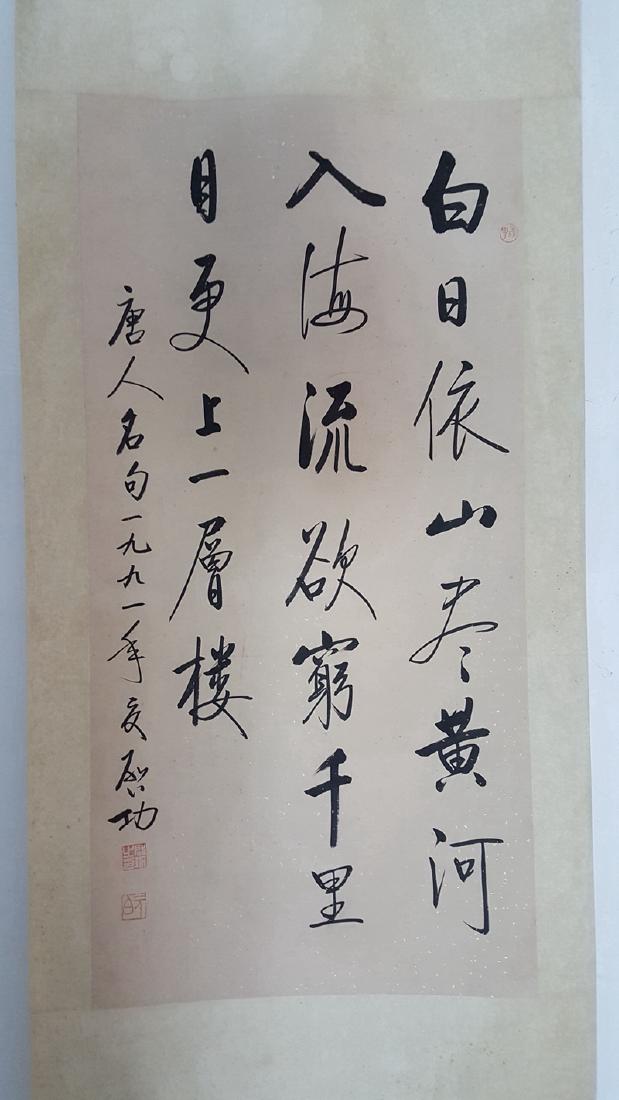 白日依山尽黄河
入海流欲窮千里
目更上一層楼
唐人名句一九九一年夏启功